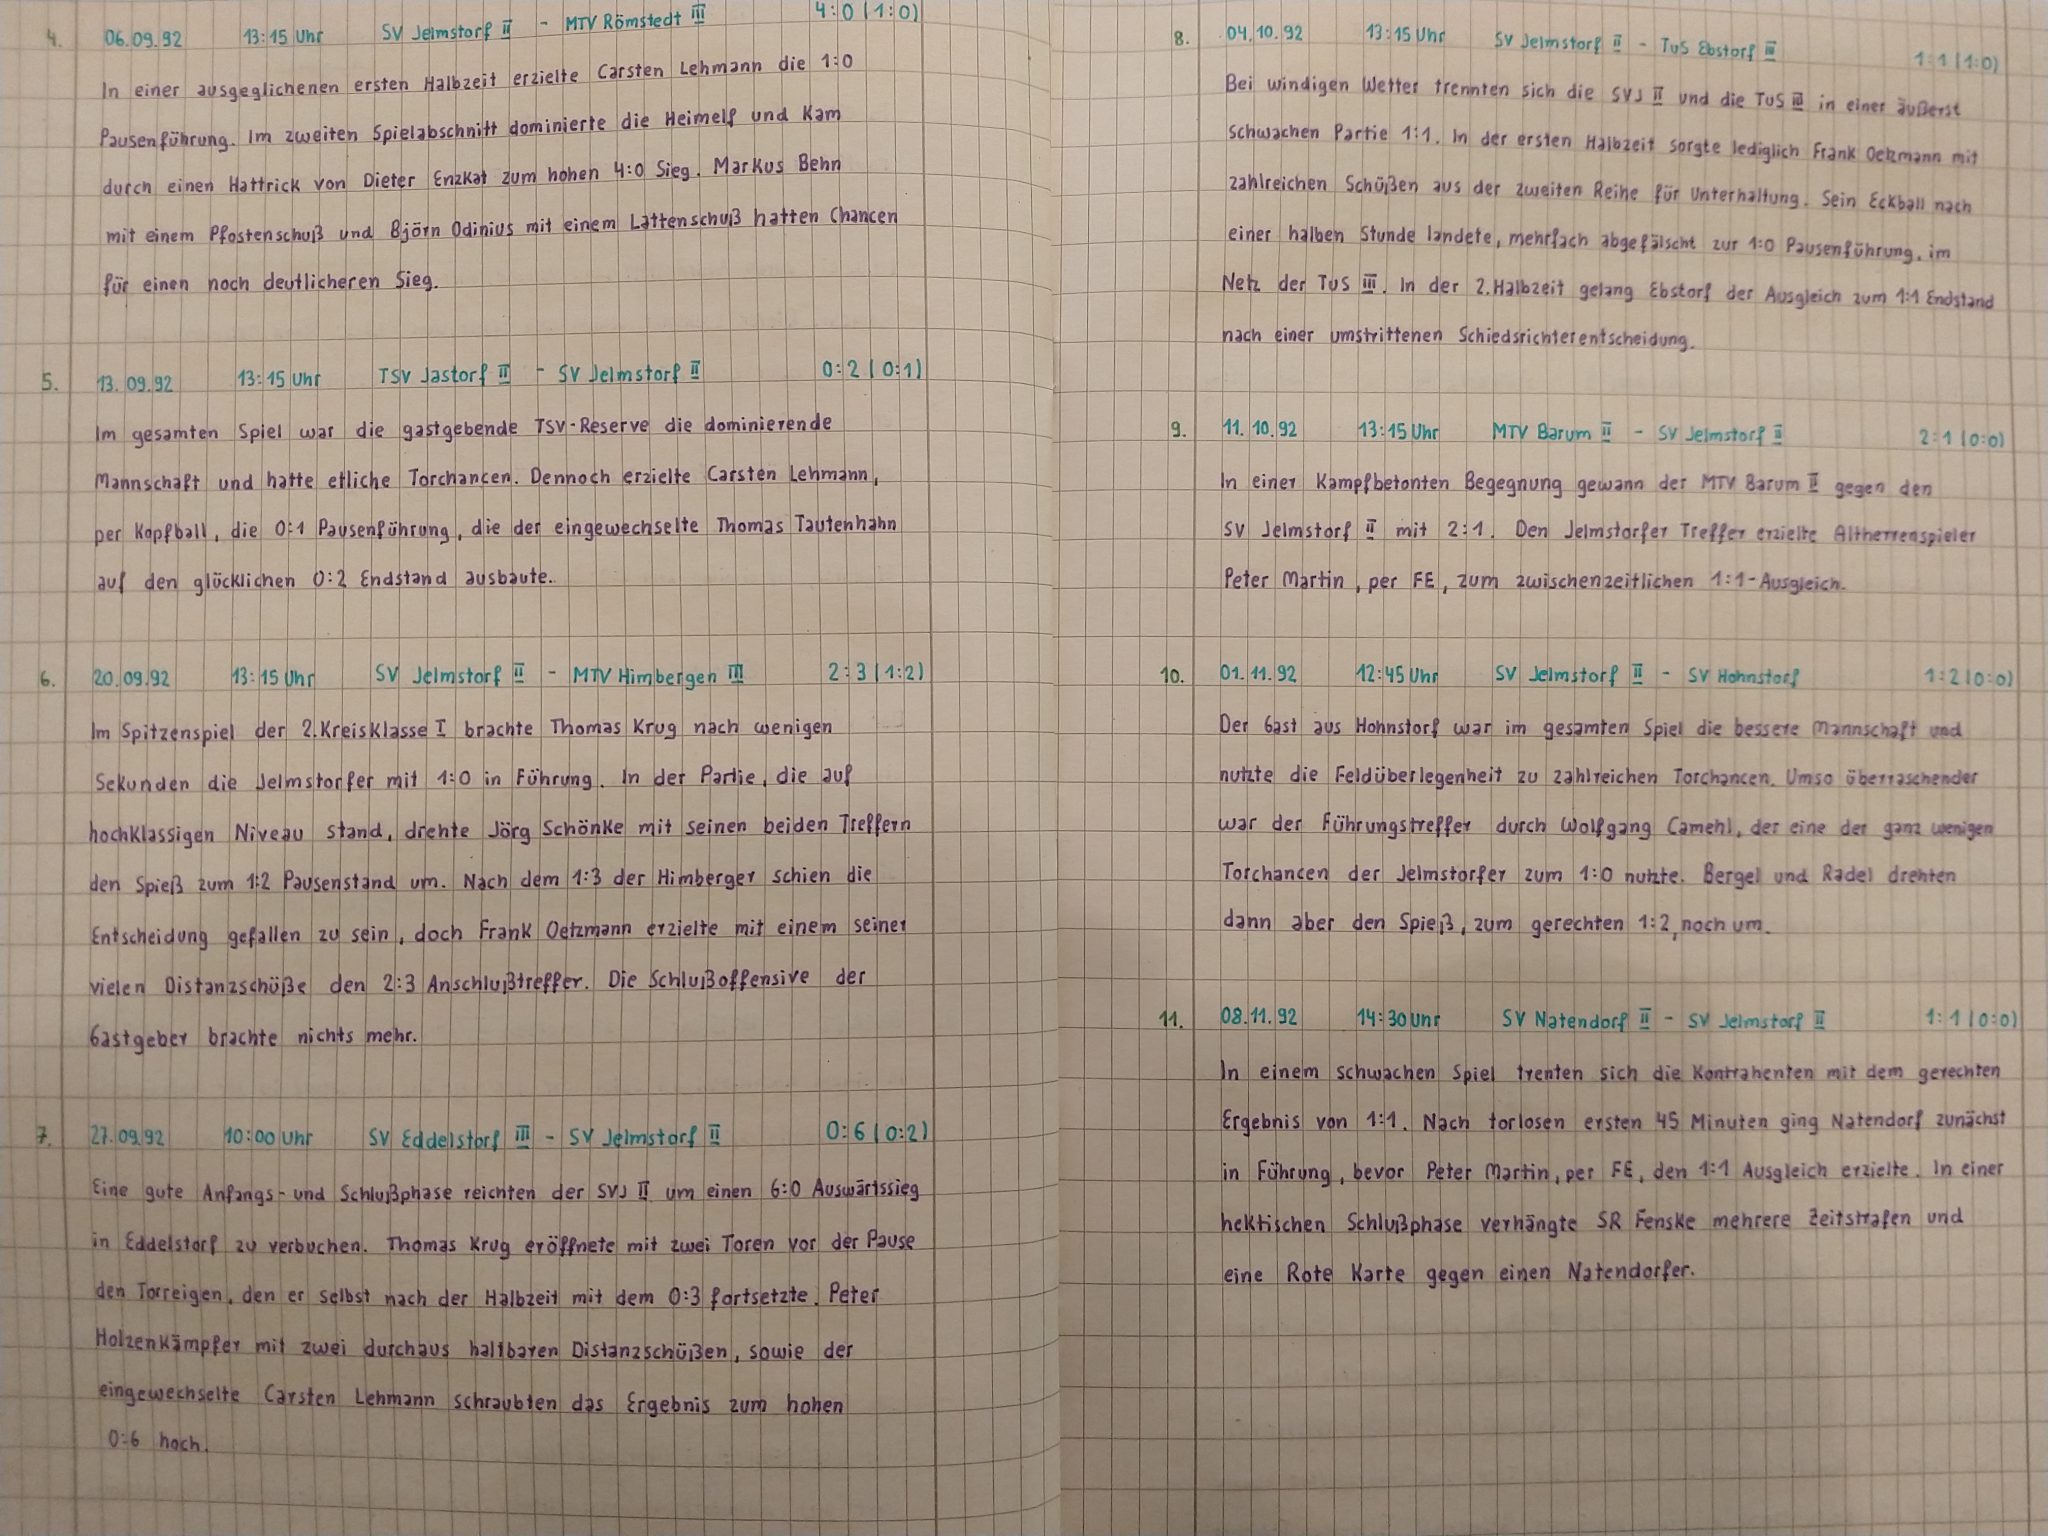 4. 06.09.92 13:15 Uhr SV Jelmstorf II - MTV Römstedt III 4:0 (1:0)
In einer ausgeglichenen ersten Halbzeit erzielte Carsten Lehmann die 1:0
Pausenführung. Im zweiten Spielabschnitt dominierte die Heimelf und kam
durch einen Hattrick von Dieter Enzkat zum hohen 4:0 Sieg. Markus Behn
mit einem Pfostenschuß und Björn Odinius mit einem Lattenschuß hatten Chancen
für einen noch deutlicheren Sieg.
5. 13.09.92 13:15 Uhr TSV Jastorf II - SV Jelmstorf II 0:2 (0:1)
Im gesamten Spiel war die gastgebende TSV-Reserve die dominierende
Mannschaft und hatte etliche Torchancen. Dennoch erzielte Carsten Lehmann,
per Kopfball, die 0:1 Pausenführung, die der eingewechselte Thomas Tautenhahn
auf den glücklichen 0:2 Endstand ausbaute.
6. 20.09.92 13:15 Uhr SV Jelmstorf II - MTV Himbergen III 2:3 (1:2)
Im Spitzenspiel der 2.Kreisklasse I brachte Thomas Krug nach wenigen
Sekunden die Jelmstorfer mit 1:0 in Führung. In der Partie, die auf
hochklassigen Niveau stand, drehte Jörg Schönke mit seinen beiden Treffern
den Spieß zum 1:2 Pausenstand um. Nach dem 1:3 der Himberger schien die
Entscheidung gefallen zu sein, doch Frank Oetzmann erzielte mit einem seiner
vielen Distanzschüße den 2:3 Anschlußtreffer. Die Schlußoffensive der
Gastgeber brachte nichts mehr.
7. 27.09.92 10:00 Uhr SV Eddelstorf III - SV Jelmstorf II 0:6 (0:2)
Eine gute Anfangs- und Schlußphase reichten der SVJ II um einen 6:0 Auswärtssieg
in Eddelstorf zu verbuchen. Thomas Krug eröffnete mit zwei Toren vor der Pause
den Torreigen, den er selbst nach der Halbzeit mit dem 0:3 fortsetzte. Peter
Holzenkämpfer mit zwei durchaus haltbaren Distanzschüßen, sowie der
eingewechselte Carsten Lehmann schraubten das Ergebnis zum hohen
0:6 hoch.
8. 04.10.92 13:15 Uhr SV Jelmstorf II - TuS Ebstorf III 1:1 (1:0)
Bei windigen Wetter trennten sich die SVJ II und die TuS III in einer äußerst
schwachen Partie 1:1. In der ersten Halbzeit sorgte lediglich Frank Oetzmann mit
zahlreichen Schüßen aus der zweiten Reihe für Unterhaltung. Sein Eckball nach
einer halben Stunde landete, mehrfach abgefälscht zur 1:0 Pausenführung, im
Netz der TuS III. In der 2.Halbzeit gelang Ebstorf der Ausgleich zum 1:1 Endstand
nach einer umstrittenen Schiedsrichterentscheidung.
9. 11.10.92 13:15 Uhr MTV Barum II - SV Jelmstorf II 2:1 (0:0)
In einer kampfbetonten Begegnung gewann der MTV Barum II gegen den
SV Jelmstorf II mit 2:1. Den Jelmstorfer Treffer erzielte Altherrenspieler
Peter Martin, per FE, zum zwischenzeitlichen 1:1-Ausgleich.
10. 01.11.92 12:45 Uhr SV Jelmstorf II - SV Hohnstorf 1:2 (0:0)
Der Gast aus Hohnstorf war im gesamten Spiel die bessere Mannschaft und
nutzte die Feldüberlegenheit zu zahlreichen Torchancen. Umso überraschender
war der Führungstreffer durch Wolfgang Camehl, der eine der ganz wenigen
Torchancen der Jelmstorfer zum 1:0 nutzte. Bergel und Radel drehten
dann aber den Spieß, zum gerechten 1:2, noch um.
11. 08.11.92 14:30 Uhr SV Natendorf II - SV Jelmstorf II 1:1 (0:0)
In einem schwachen Spiel trenten sich die Kontrahenten mit dem gerechten
Ergebnis von 1:1. Nach torlosen ersten 45 Minuten ging Natendorf zunächst
in Führung, bevor Peter Martin, per FE, den 1:1 Ausgleich erzielte. In einer
hektischen Schlußphase verhängte SR Fenske mehrere Zeitstrafen und
eine Rote Karte gegen einen Natendorfer.